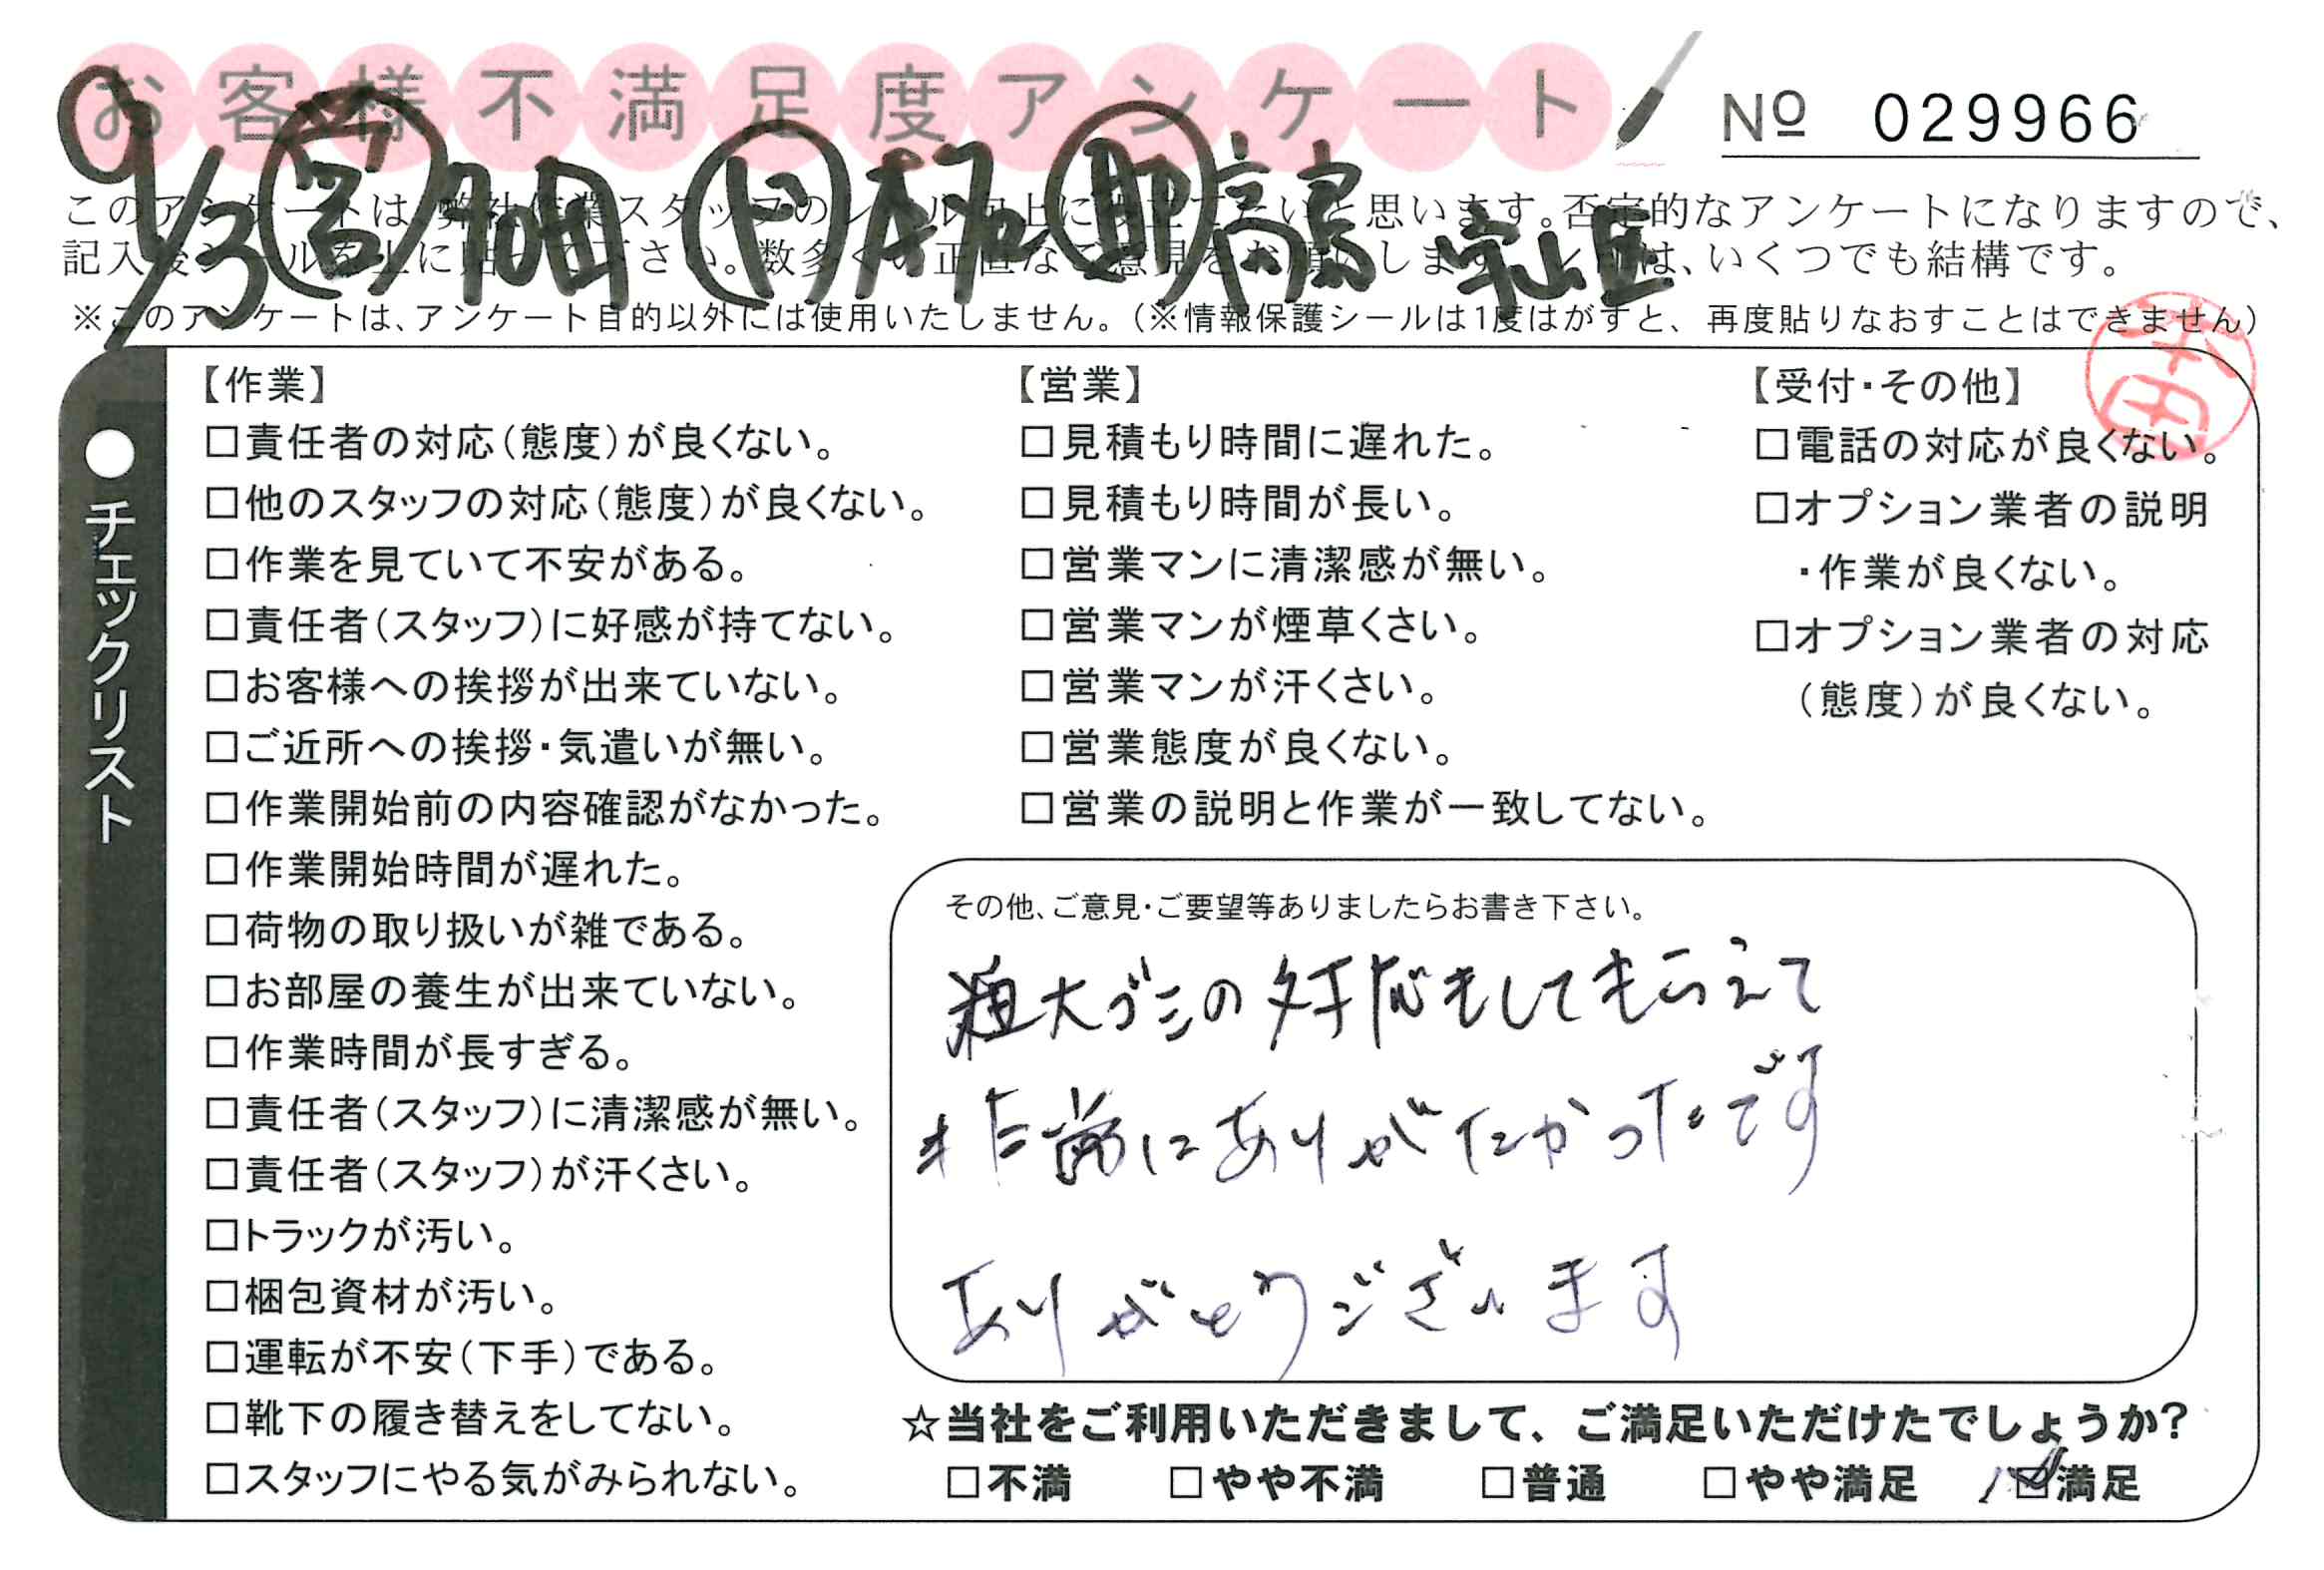 お客様不満足度アンケート
№ 029966
9/3
このアンケートは、弊社作業スタッフのレベル向上に役立てたいと思います。否定的なアンケートになりますので、
記入後シールを上に貼って下さい。数多くの正直なご意見をお願いします。チェックは、いくつでも結構です。
※このアンケートは、アンケート目的以外には使用いたしません。(※情報保護シールは1度はがすと、再度貼りなおすことはできません)
●チェックリスト
【作業】
□責任者の対応(態度)が良くない。
□他のスタッフの対応(態度)が良くない。
□作業を見ていて不安がある。
□責任者(スタッフ)に好感が持てない。
□お客様への挨拶が出来ていない。
□ご近所への挨拶・気遣いが無い。
□作業開始前の内容確認がなかった。
□作業開始時間が遅れた。
□荷物の取り扱いが雑である。
□お部屋の養生が出来ていない。
□作業時間が長すぎる。
□責任者(スタッフ)に清潔感が無い。
□責任者(スタッフ)が汗くさい。
□トラックが汚い。
□梱包資材が汚い。
□運転が不安(下手)である。
□靴下の履き替えをしてない。
□スタッフにやる気がみられない。
【営業】
□見積もり時間に遅れた。
□見積もり時間が長い。
□営業マンに清潔感が無い。
□営業マンが煙草くさい。
□営業マンが汗くさい。
□営業態度が良くない。
□営業の説明と作業が一致してない。
【受付・その他】
□電話の対応が良くない。
□オプション業者の説明
・作業が良くない。
□オプション業者の対応
(態度)が良くない。
その他、ご意見・ご要望等ありましたらお書き下さい。
粗大ゴミの対応もしてもらえて
非常にありがたかったです
ありがとうございます
☆当社をご利用いただきまして、ご満足いただけたでしょうか?
□不満 □やや不満 □普通 □やや満足 ☑満足